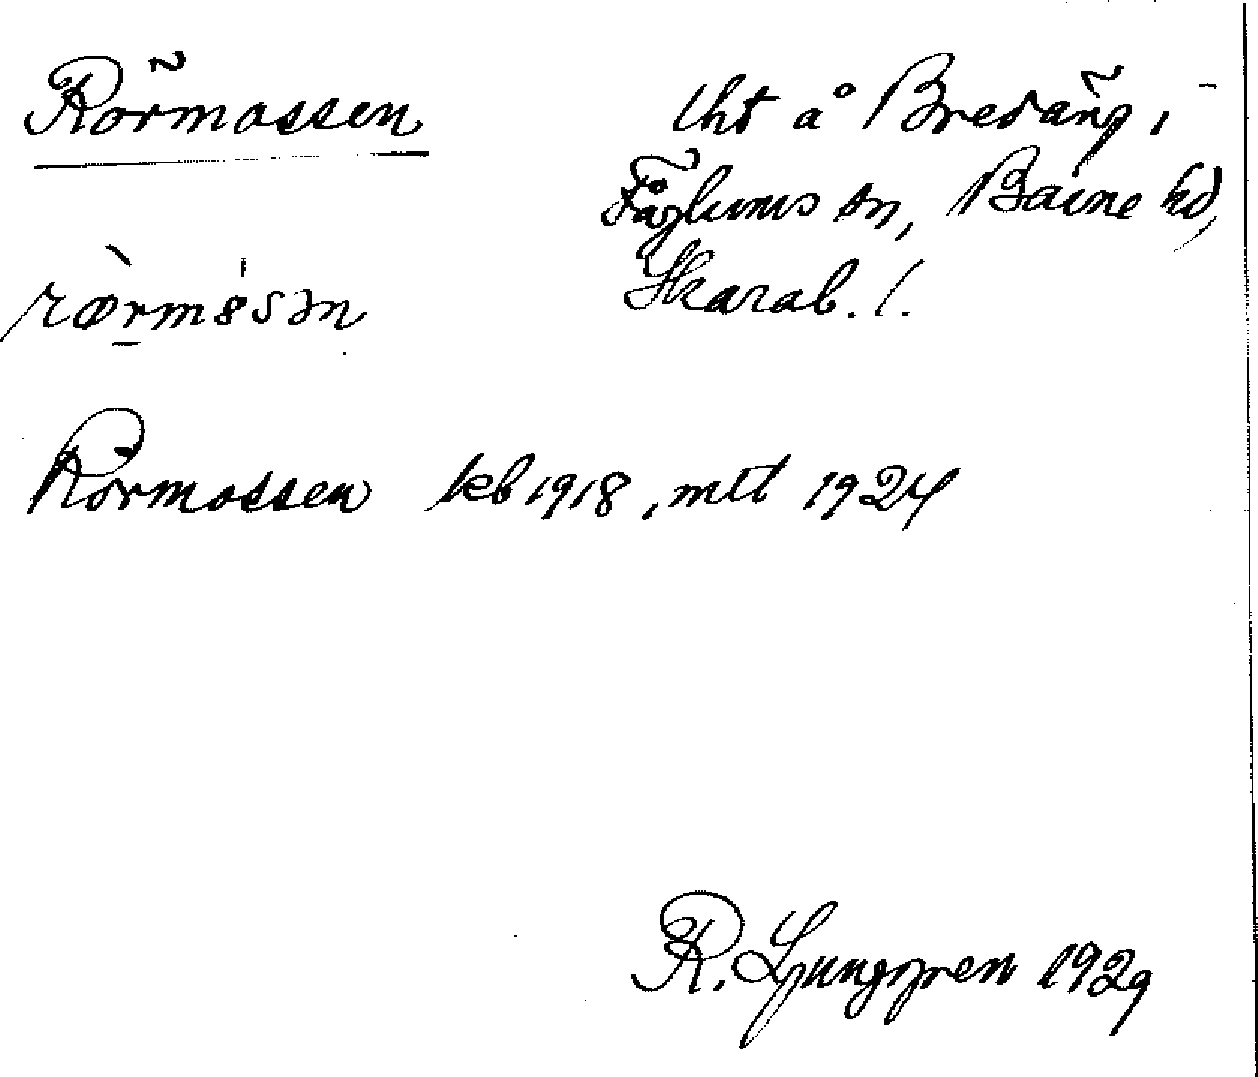 Rörmossen
lht å Bredäng i
Fåglums sn, Barne hd,
Skarab. l.
Rörmossen kb 1918, mtl 1924
R. Ljunggren 1929